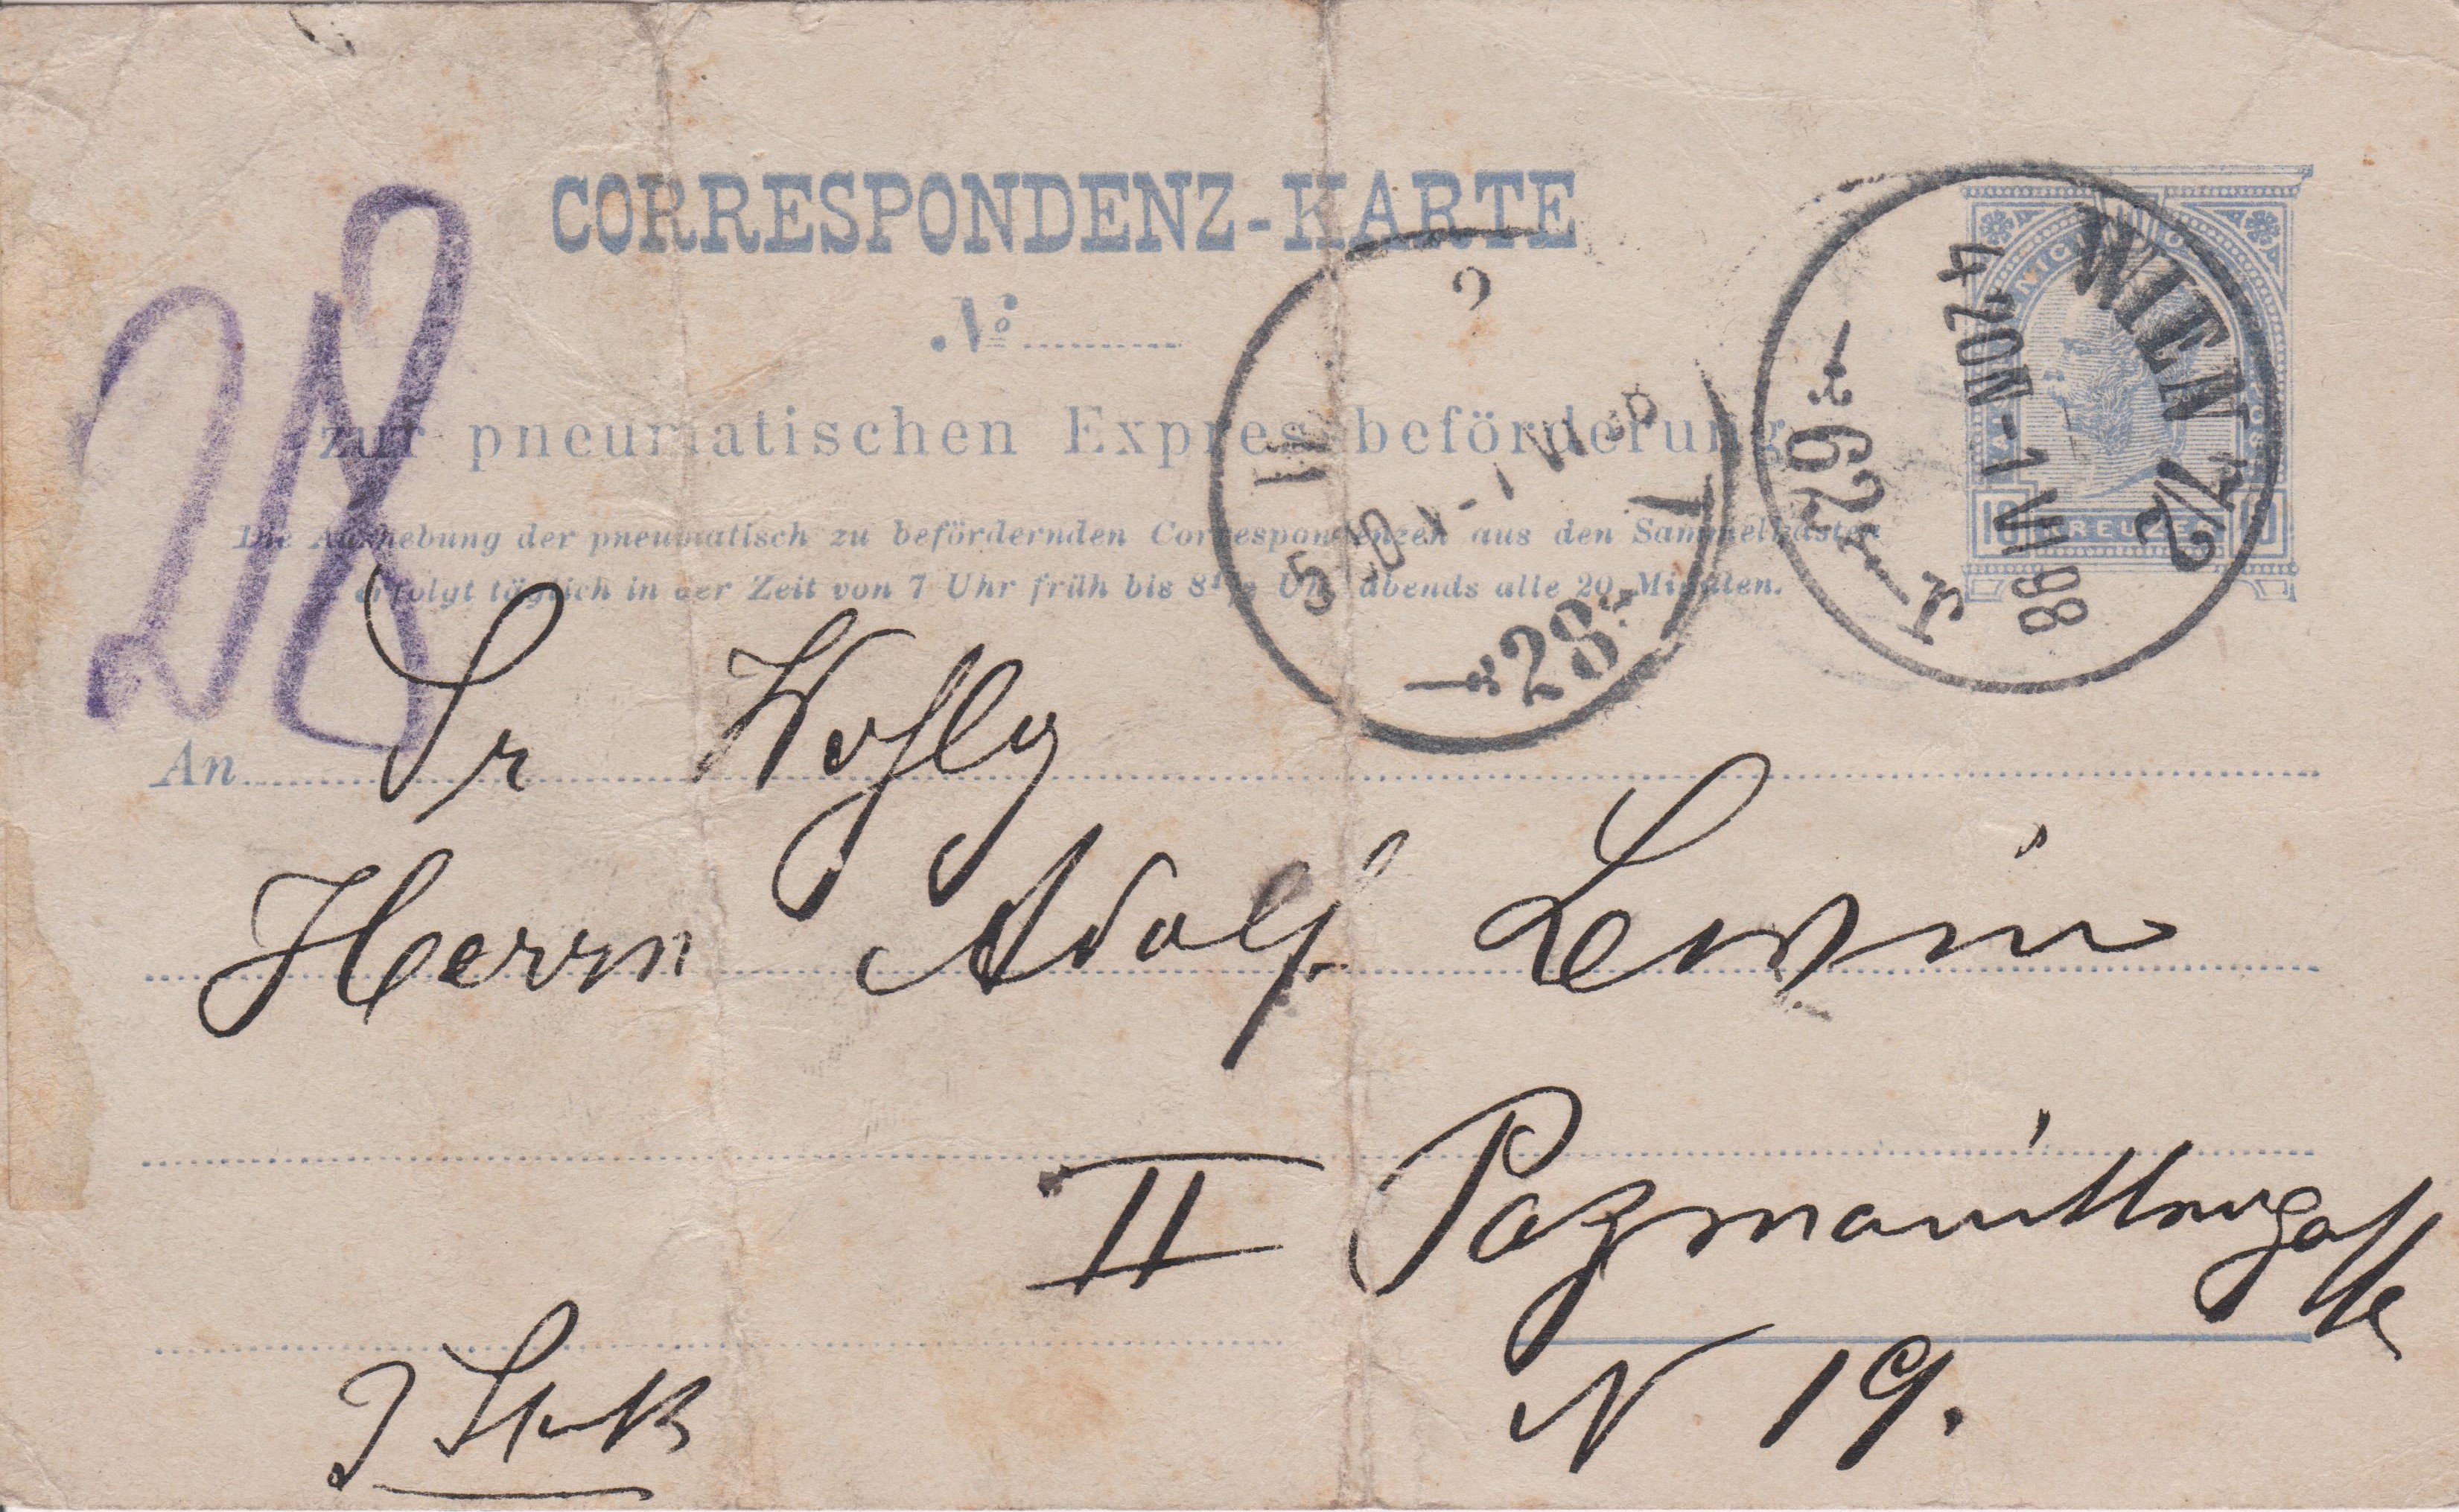 CORRESPONDENZ-KARTE
Nº
zur pneumatischen Expressbeförderung
Die Aushebung der pneumatisch zu befördernden Correspondenzen aus den Sammelkästen
erfolgt täglich in der Zeit von 7 Uhr früh bis 8½ Uhr abends alle 20 Minuten.
28
WIEN 2/1
1 VII 88
4 20N
29
10 KREUZER 10
28
An Sr
Herrn Adolf Lewin
II Pazmanittengasse
N 19.